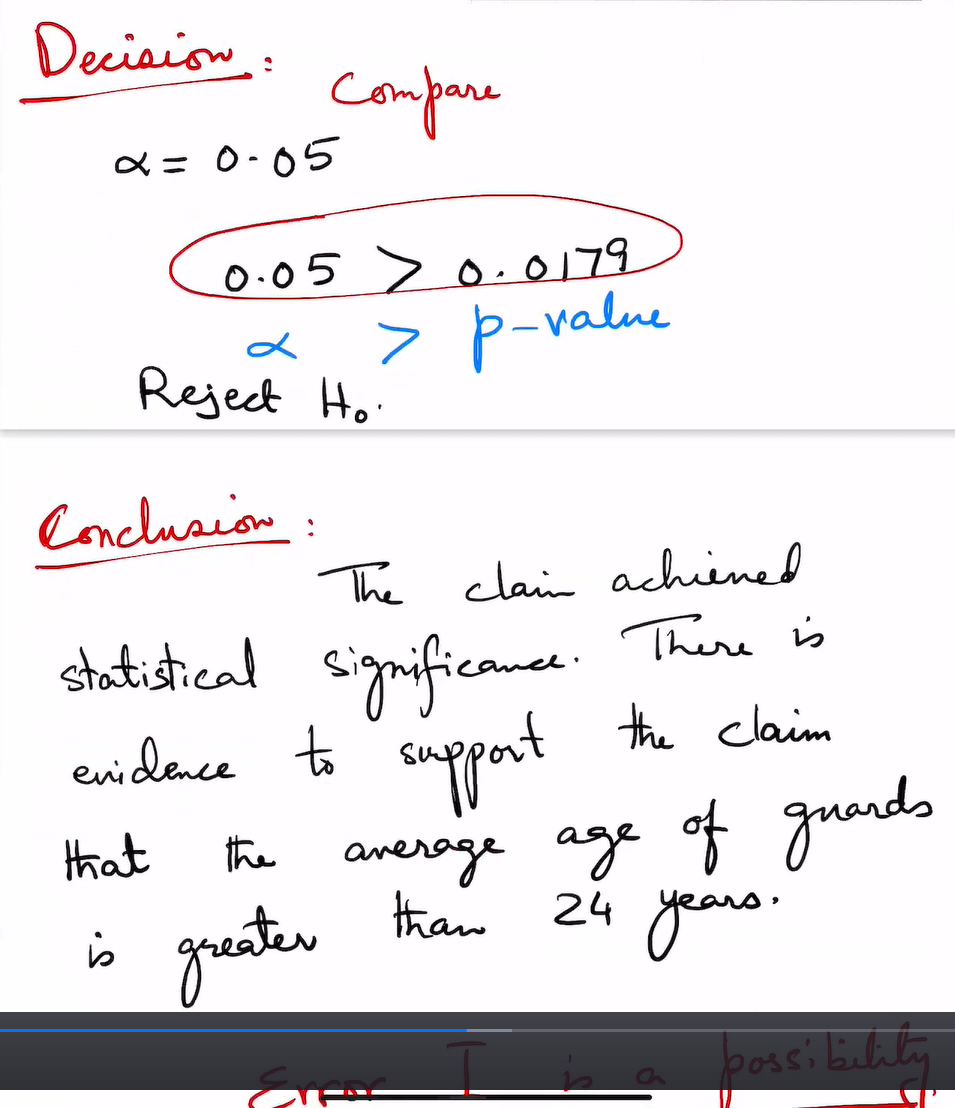 Decision :
Compare
α = 0.05
0.05 > 0.0179
α > p-value
Reject H₀.
Conclusion :
The claim achieved
statistical significance. There is
evidence to support the claim
that the average age of guards
is greater than 24 years.
Error I is a possibility